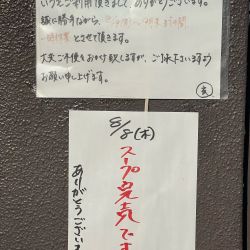 いつもご利用頂きまして、ありがとうございます。
誠に勝手ながら、
とさせて頂きます。
大変ご不便をおかけ致しますが、ご了承下さいますよう
お願い申し上げます。
8/8(木)
スープ完売です
ありがとうござい